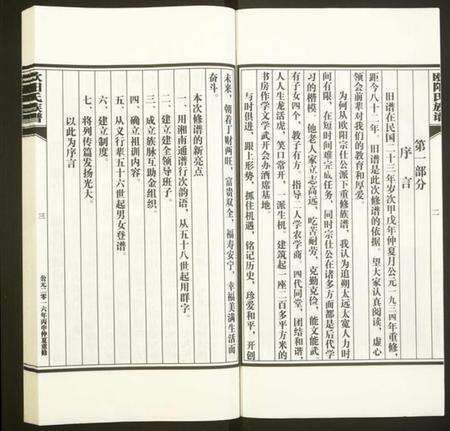 欧阳氏族谱
二
第一部分
序言
旧谱在民国二十三年岁次甲戌年仲夏月公元一九三四年重修，
距今八十二年，旧谱是此次修谱的依据。望大家认真阅读，虚心
领会前辈对我们的教育和厚爱。
为何从欧阳宗仕公派下重修族谱，我认为追朔太远太宽人力时
间有限，在短时间难完成任务，同时宗仕公在诸多方面都是后代学
习的楷模，他老人家立志高远，吃苦耐劳，克勤克俭，能文能武，
有子女四个，教子有方，指导二人学农学商，四代同堂，团结和谐，
人人生龙活虎，笑口常开，一派生机，建筑起一座二百多平方米的
书房作学文学武开会办酒席基地。
与时俱进，跟上形势，抓住机遇，铭记历史，珍爱和平，开创
未来，朝着丁财两旺，富贵双全，福寿安宁，幸福美满生活而
奋斗。
本次修谱的新亮点
一、用湘南通谱行次韵语，从五十八世起用群字。
二、建立建全领导班子。
三、成立族脉互助金组织。
四、确立祖训内容
五、从义行辈五十六世起男女登谱。
六、建立制度
七、将列传篇发扬光大。
以此为序言
欧阳氏族谱
三
公元二零一六年丙申仲夏重修